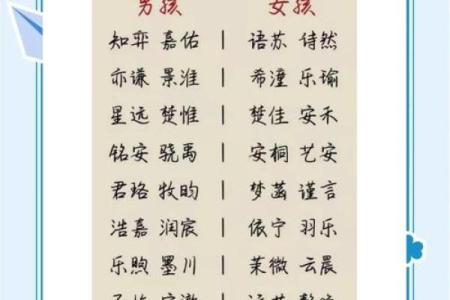 男孩 女孩
知弈 嘉佑 | 语苏 侍然
亦谦 景淮 | 希潼 乐瑜
星远 楚惟 | 楚佳 安禾
铭安 骁禹 | 安桐 艺安
君珞 牧昀 | 梦菡 谨言
浩嘉 润宸 | 依宁 羽乐
乐煦 墨川 | 茉微 云晨